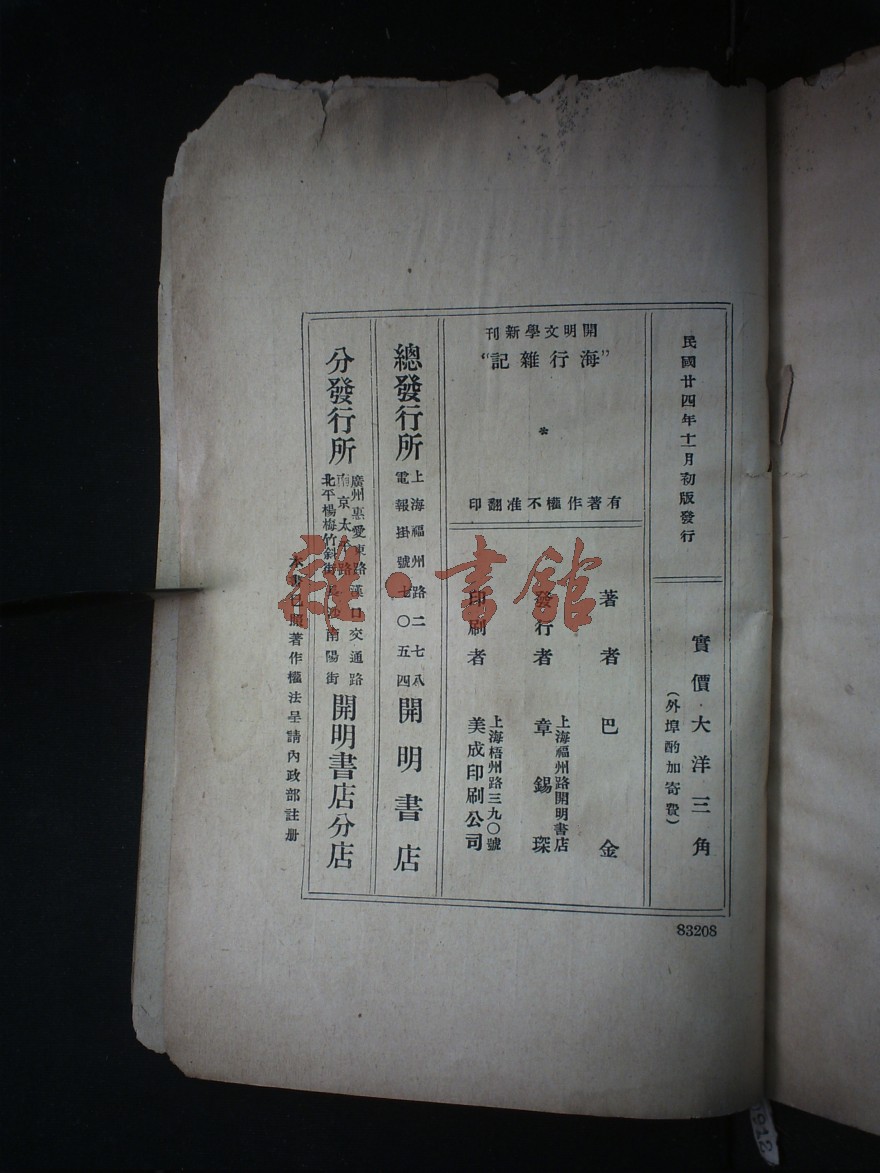 民國廿四年十一月初版發行
實價·大洋三角
(外埠酌加寄費)
開明文學新刊
“海行雜記”
*
有著作權不准翻印
著者 巴金
發行者 章錫琛
上海福州路開明書店
印刷者 美成印刷公司
上海梧州路三九〇號
總發行所
上海福州路二七八
電報掛號七〇五四
開明書店
分發行所
廣州惠愛東路 漢口交通路
南京太平路 長沙南陽街
北平楊梅竹斜街
開明書店分店
本書已照著作權法呈請內政部註册
83208
雜·書館
1912